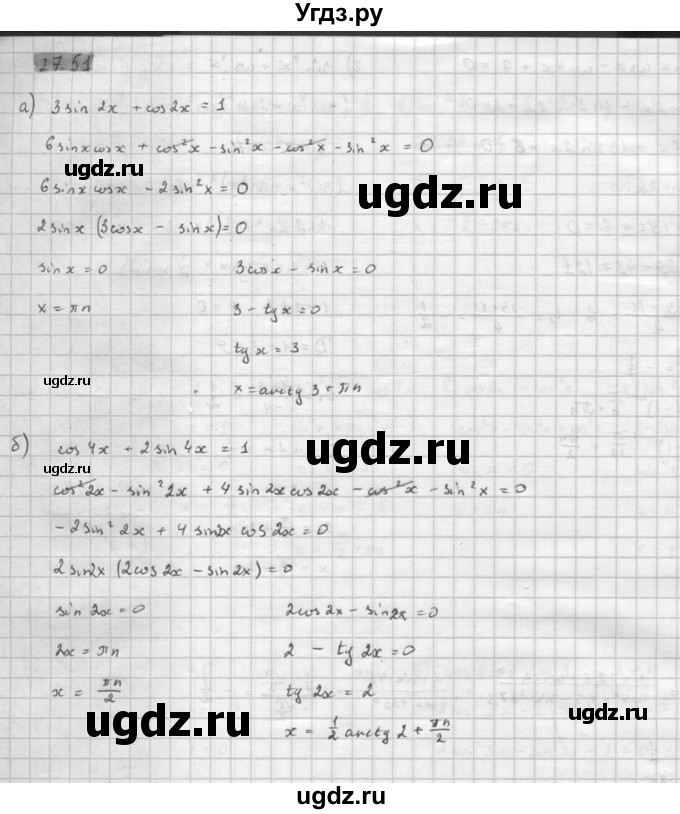 Угдз.ру
27.51
а) 3 sin 2x + cos 2x = 1
6 sin x cos x + cos²x - sin²x - cos²x - sin²x = 0
ugdz.ru
6 sin x cos x - 2 sin²x = 0
ugdz.ru
2 sin x (3 cos x - sin x) = 0
sin x = 0 3 cos x - sin x = 0
x = πn 3 - tg x = 0
tg x = 3
ugdz.ru ugdz.ru
x = arctg 3 + πn
б) cos 4x + 2 sin 4x = 1
ugdz.ru
cos²2x - sin²2x + 4 sin 2x cos 2x - cos²x - sin²x = 0
-2 sin²2x + 4 sin 2x cos 2x = 0
ugdz.ru
2 sin 2x (2 cos 2x - sin 2x) = 0
sin 2x = 0 2 cos 2x - sin 2x = 0
2x = πn 2 - tg 2x = 0
x = πn/2 tg 2x = 2
ugdz.ru ugdz.ru
x = 1/2 arctg 2 + πn/2
ugdz.ru